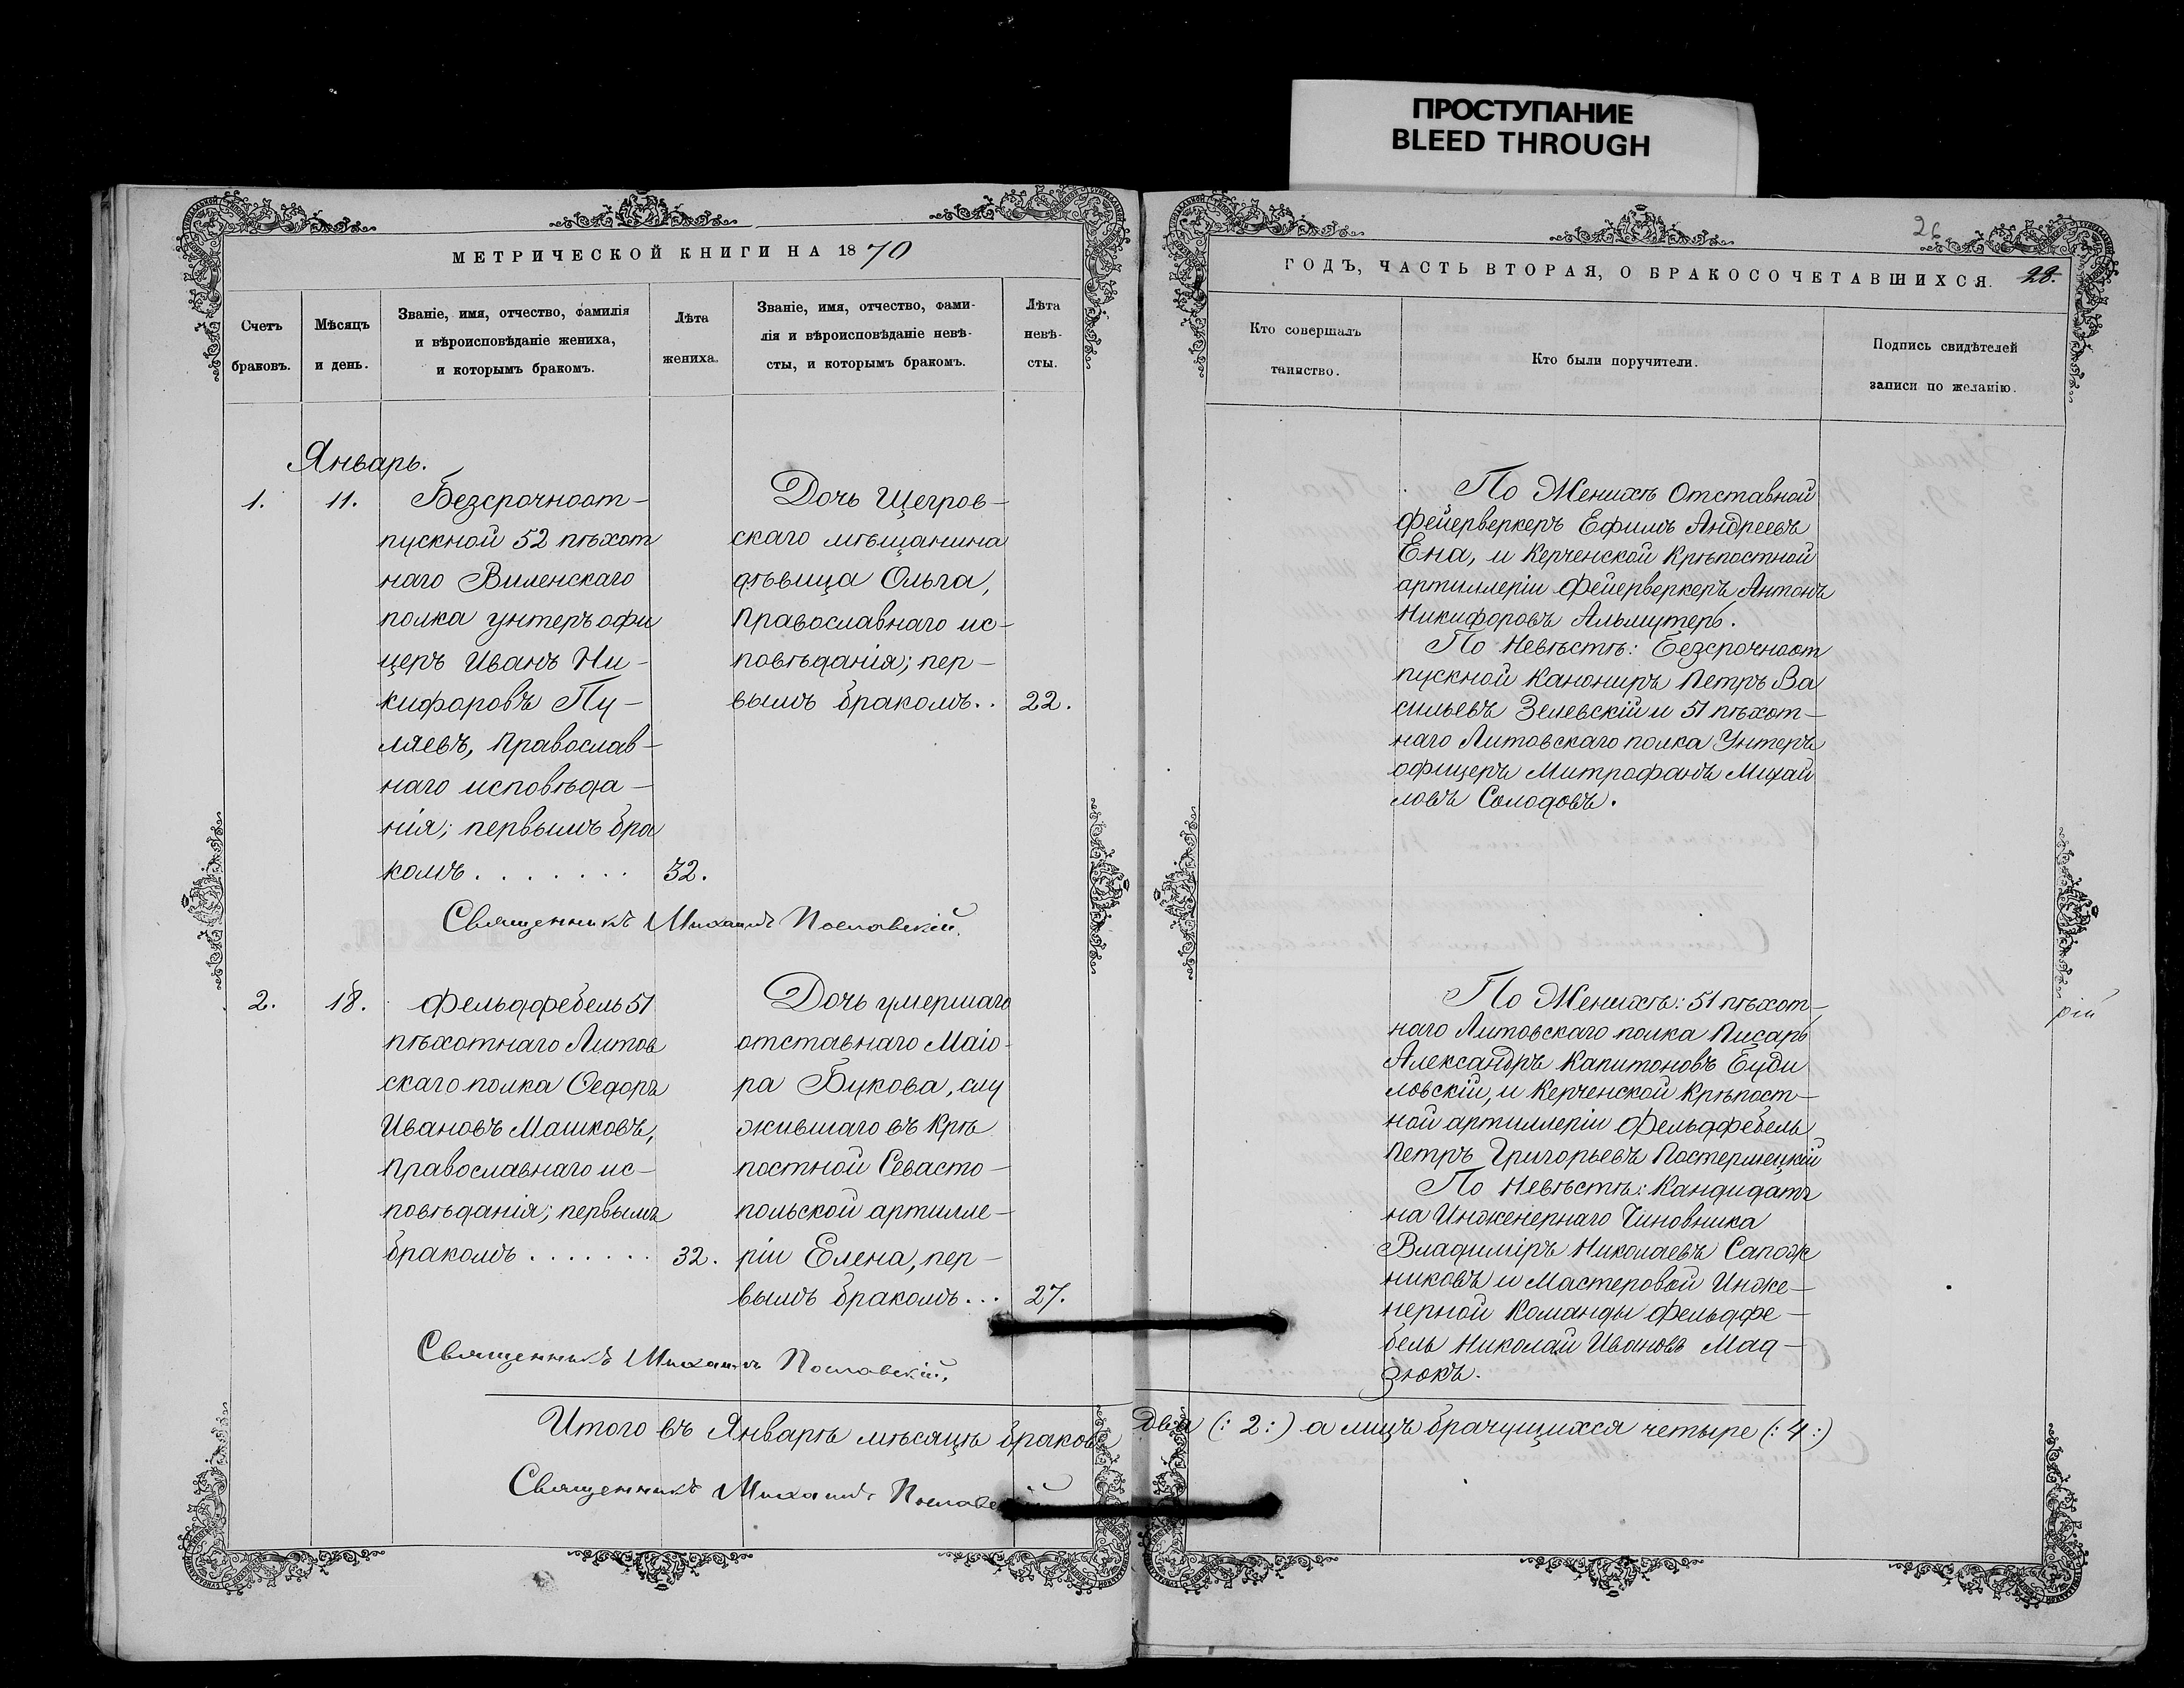 ПРОСТУПАНИЕ
BLEED THROUGH
МЕТРИЧЕСКОЙ КНИГИ НА 1870
Счетъ
браковъ.
Мѣсяцъ
и день.
Званіе, имя, отчество, фамилія
и вѣроисповѣданіе жениха,
и которымъ бракомъ.
Лѣта
жениха.
Званіе, имя, отчество, фами-
лія и вѣроисповѣданіе невѣ-
сты, и которымъ бракомъ.
Лѣта
невѣ-
сты.
Январь.
1. 11.
Безсрочноот-
пускной 52 пѣхот
наго Виленскаго
полка унтеръ офи
церъ Иванъ Ни-
кифоровъ Пу-
ляевъ, Православ-
наго исповѣда-
нія; первымъ бра
комъ . . . . . . . 32.
Дочь Щегров-
скаго мѣщанина
дѣвица Ольга,
Православнаго ис-
повѣданія; пер-
вымъ бракомъ. . 22.
Священникъ Михаилъ Пославскій.
2. 18.
Фельдфебель 51
пѣхотнаго Литов
скаго полка Ѳедоръ
Ивановъ Машковъ,
Православнаго ис-
повѣданія; первымъ
бракомъ . . . . . . . 32.
Дочь умершаго
отставнаго Маіо-
ра Букова, слу
жившаго въ Крѣ
постной Севасто-
польской артилле-
ріи Елена, пер-
вымъ бракомъ . . . 27.
Священникъ Михаилъ Пославскій.
Итого въ Январѣ мѣсяцѣ браковъ
Священникъ Михаилъ Пославскій
26
ГОДЪ, ЧАСТЬ ВТОРАЯ, О БРАКОСОЧЕТАВШИХСЯ. 28.
Кто совершалъ
таинство.
Кто были поручители.
Подпись свидѣтелей
записи по желанію.
По Женихѣ Отставной
Фейерверкеръ Ефимъ Андреевъ
Ена, и Керченской Крѣпостной
артиллеріи Фейерверкеръ Антонъ
Никифоровъ Альмутеръ.
По Невѣстѣ: Безсрочноот
пускной Канониръ Петръ Ва
сильевъ Зелевскій и 51 пѣхот-
наго Литовскаго полка Унтеръ
офицеръ Митрофанъ Михай
ловъ Солодовъ.
По Женихѣ: 51 пѣхот-
наго Литовскаго полка Писарь
Александръ Капитоновъ Буди
ловскій, и Керченской Крѣпост-
ной артиллеріи Фельдфебель
Петръ Григорьевъ Постермецкій
По Невѣстѣ: Кандидатъ
на Инженернаго Чиновника
Владиміръ Николаевъ Сапож
никовъ и Мастеровой Инже-
нерной Команды Фельдфе-
бель Николай Ивановъ Мад-
зюкъ.
два (: 2 :) а лицъ брачущихся четыре (: 4 :)
рій